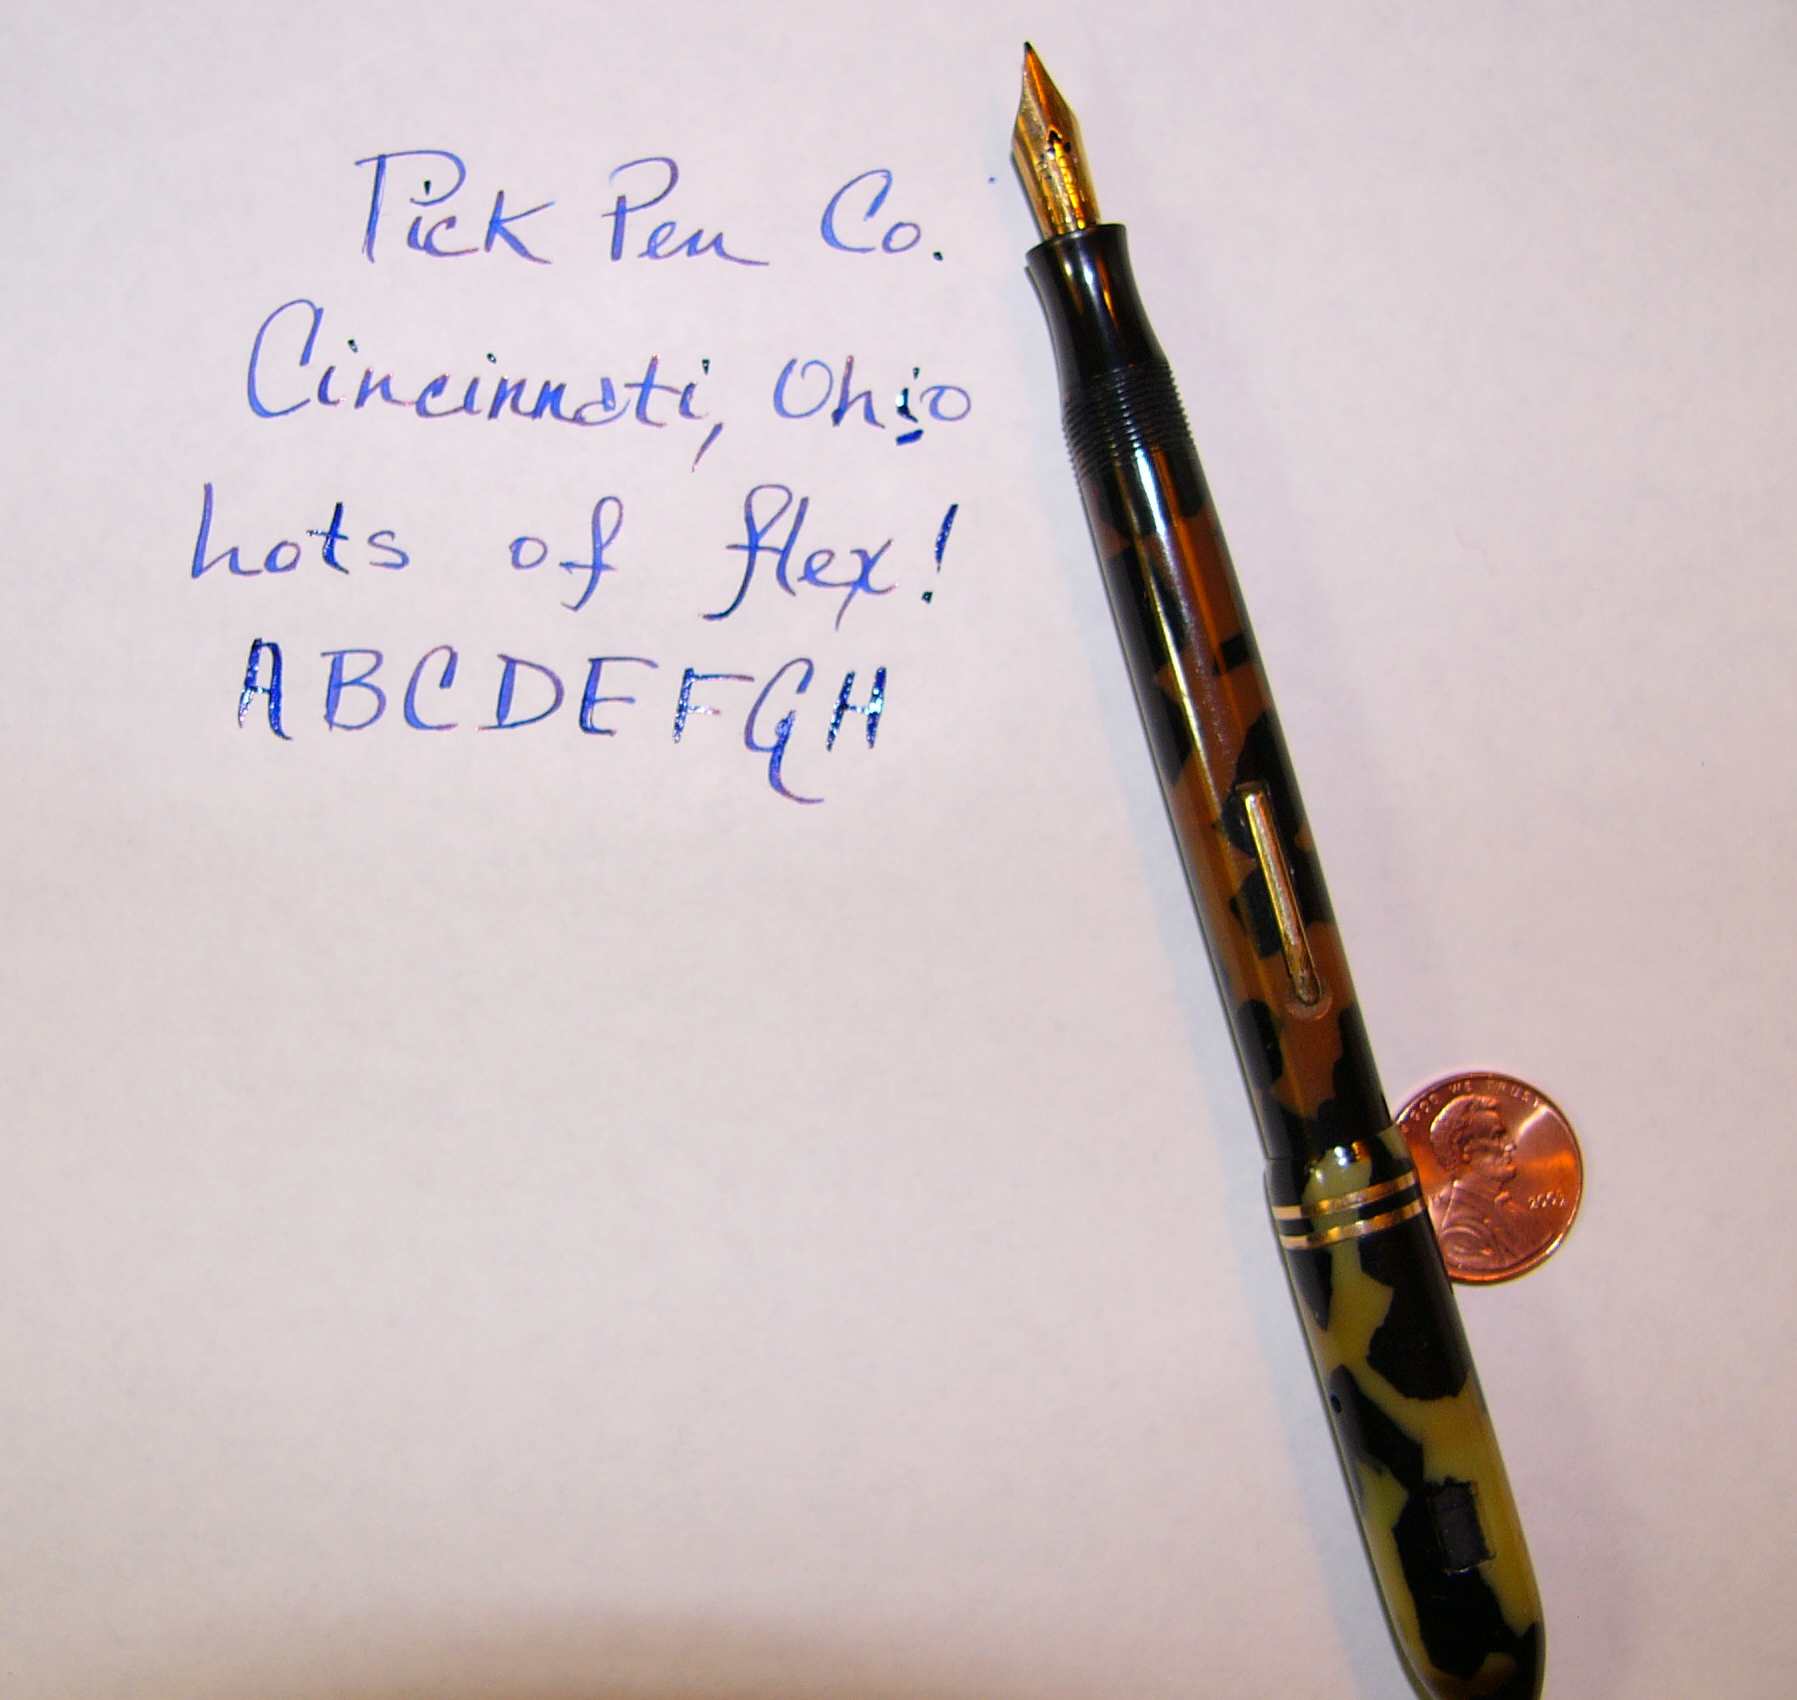 Pick Pen Co.
Cincinnati, Ohio
hots of flex!
ABCDEFGH
WE TRUST